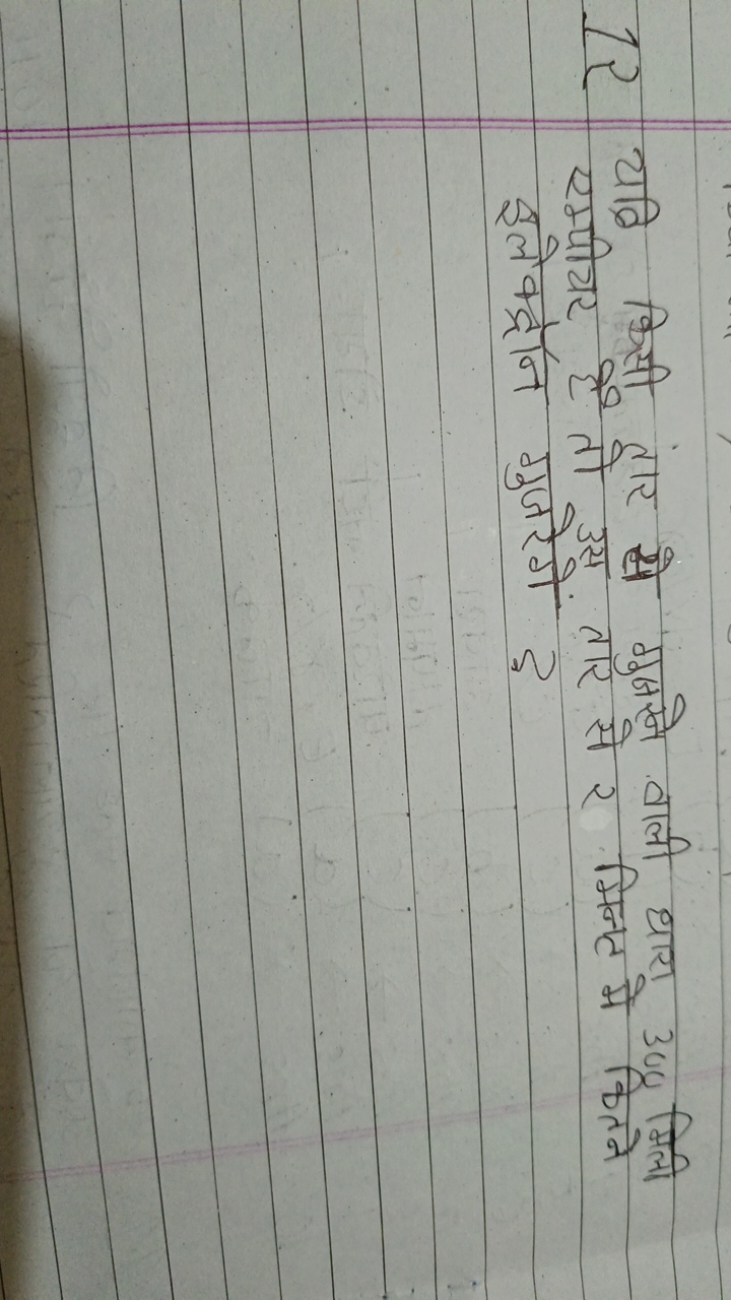 12 यदि किसी तार से गुजरने वाली धारा 300 मिली
एम्पीयर है तो उस तार से 2 मिनट में कितने
इलेक्ट्रॉन गुजरेगे ?